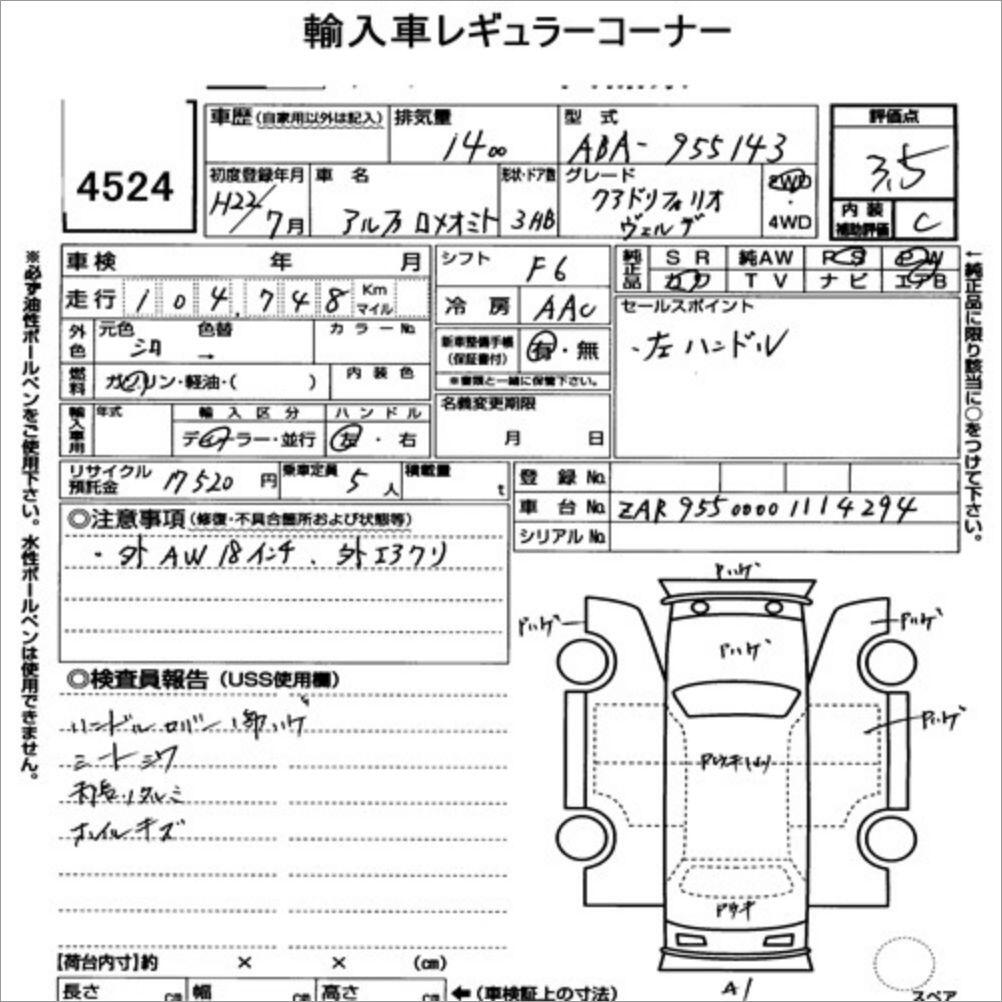 輸入車レギュラーコーナー
4524
車歴(自家用以外は記入) 排気量 1400
型式 ABA-955143
評価点 3.5
初度登録年月 H22/7月
車名 アルファロメオミト
形状・ドア数 3HB
グレード
ヴェルデ
2WD・4WD
内装補助評価 C
車検 年 月
シフト F6
純正品 SR 純AW PS PW
カワ TV ナビ エアB
走行 104,748 Km マイル
冷房 AAC
セールスポイント
・左ハンドル
外色 元色 シロ 色替 → カラーNo.
新車整備手帳(保証書付) 有・無
※書類と一緒に保管下さい。
燃料 ガソリン・軽油・( ) 内装色
名義変更期限
月 日
輸入車用 年式 輸入区分 ハンドル
ディーラー・並行 左・右
リサイクル預託金 17520円 乗車定員 5人 積載量 t
登録No.
車台No. ZAR95500001114294
シリアルNo.
◎注意事項(修復・不具合箇所および状態等)
・外AW18インチ、外エアクリ
◎検査員報告(USS使用欄)
ハンドル
シートシワ
ホイルキズ
【荷台内寸】約 × × (cm)
長さ cm 幅 cm 高さ cm ←(車検証上の寸法)
A1
スペア
※必ず油性ボールペンをご使用下さい。水性ボールペンは使用できません。
←純正品に限り該当に○をつけて下さい。